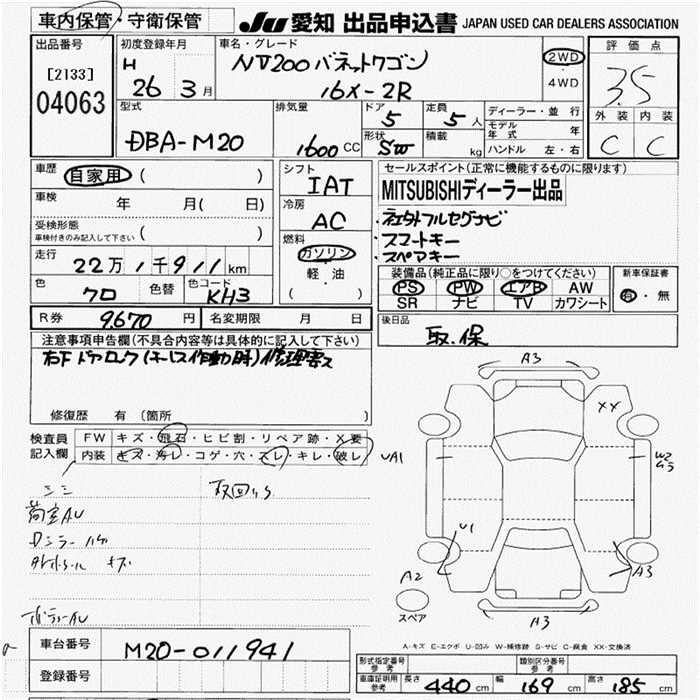 車内保管・守衛保管
JU 愛知 出品申込書 JAPAN USED CAR DEALERS ASSOCIATION
出品番号
[2133]
04063
初度登録年月
H 26 3 月
車名・グレード
NV200 バネットワゴン
16X-2R
2WD
・
4WD
評価点
3.5
外装 内装
C C
型式
DBA-M20
排気量
1600 CC
ドア
5
定員
5 人
形状
SW
積載
kg
ディーラー・並行
モデル年式 年
ハンドル 左・右
車歴
自家用 ( )
車検
年 月( 日)
受検形態
車検付きのみ記入して下さい ( )
走行
22万 1千911 km
色
クロ
色替
色コード
KH3
シフト
IAT
冷房
AC
燃料
ガソリン
・
軽・油
( )
セールスポイント(正常に機能するものに限ります)
MITSUBISHIディーラー出品
・社外フルセグナビ
・スマートキー
・スペアキー
装備品(純正品に限り○をつけてください)
PS PW エアB AW
SR ナビ TV カワシート
新車保証書
有・無
後日品
取.保
R券 9,670 円
名変期限 月 日
注意事項申告欄(不具合内容等は具体的に記入して下さい)
右F ドアロック(キーレス作動時)修理要ス
修復歴 有 (箇所 )
検査員
記入欄
FW キズ・飛石・ヒビ割・リペア跡・X要
内装 キズ・汚レ・コゲ・穴・スレ・キレ・破レ
シミ
荷室AU
Dミラーハゲ
キズ
A3
XX
UA1
W2
U1
A2
A3
スペア
A3
A-キズ E-エクボ U-凹み W-補修跡 S-サビ C-腐食 XX-交換済
車台番号
M20-011941
登録番号
形式指定番号
参考
類別区分番号
参考
車庫証明用
参考
長さ 440 cm 幅 169 cm 高さ 185 cm